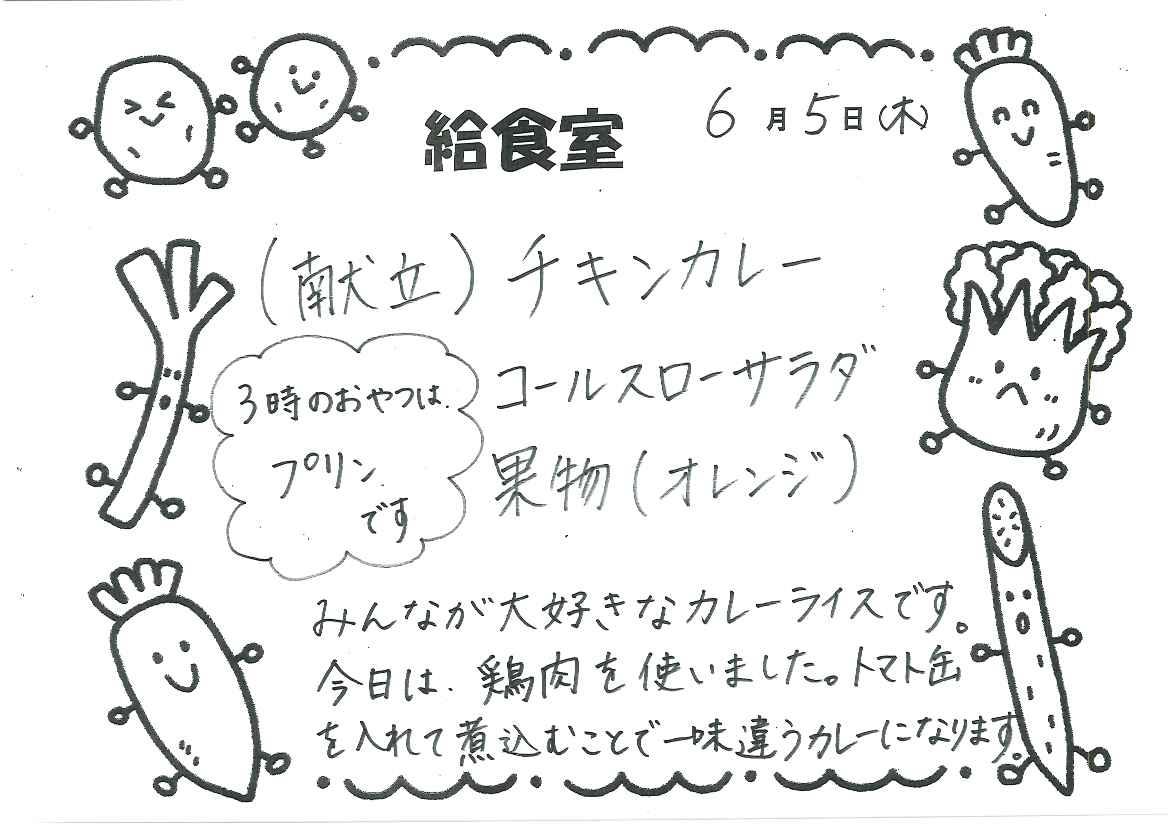 給食室
6月5日(木)
(献立)チキンカレー
コールスローサラダ
果物(オレンジ)
3時のおやつは、
プリン
です
みんなが大好きなカレーライスです。
今日は、鶏肉を使いました。トマト缶
を入れて煮込むことで一味違うカレーになります。